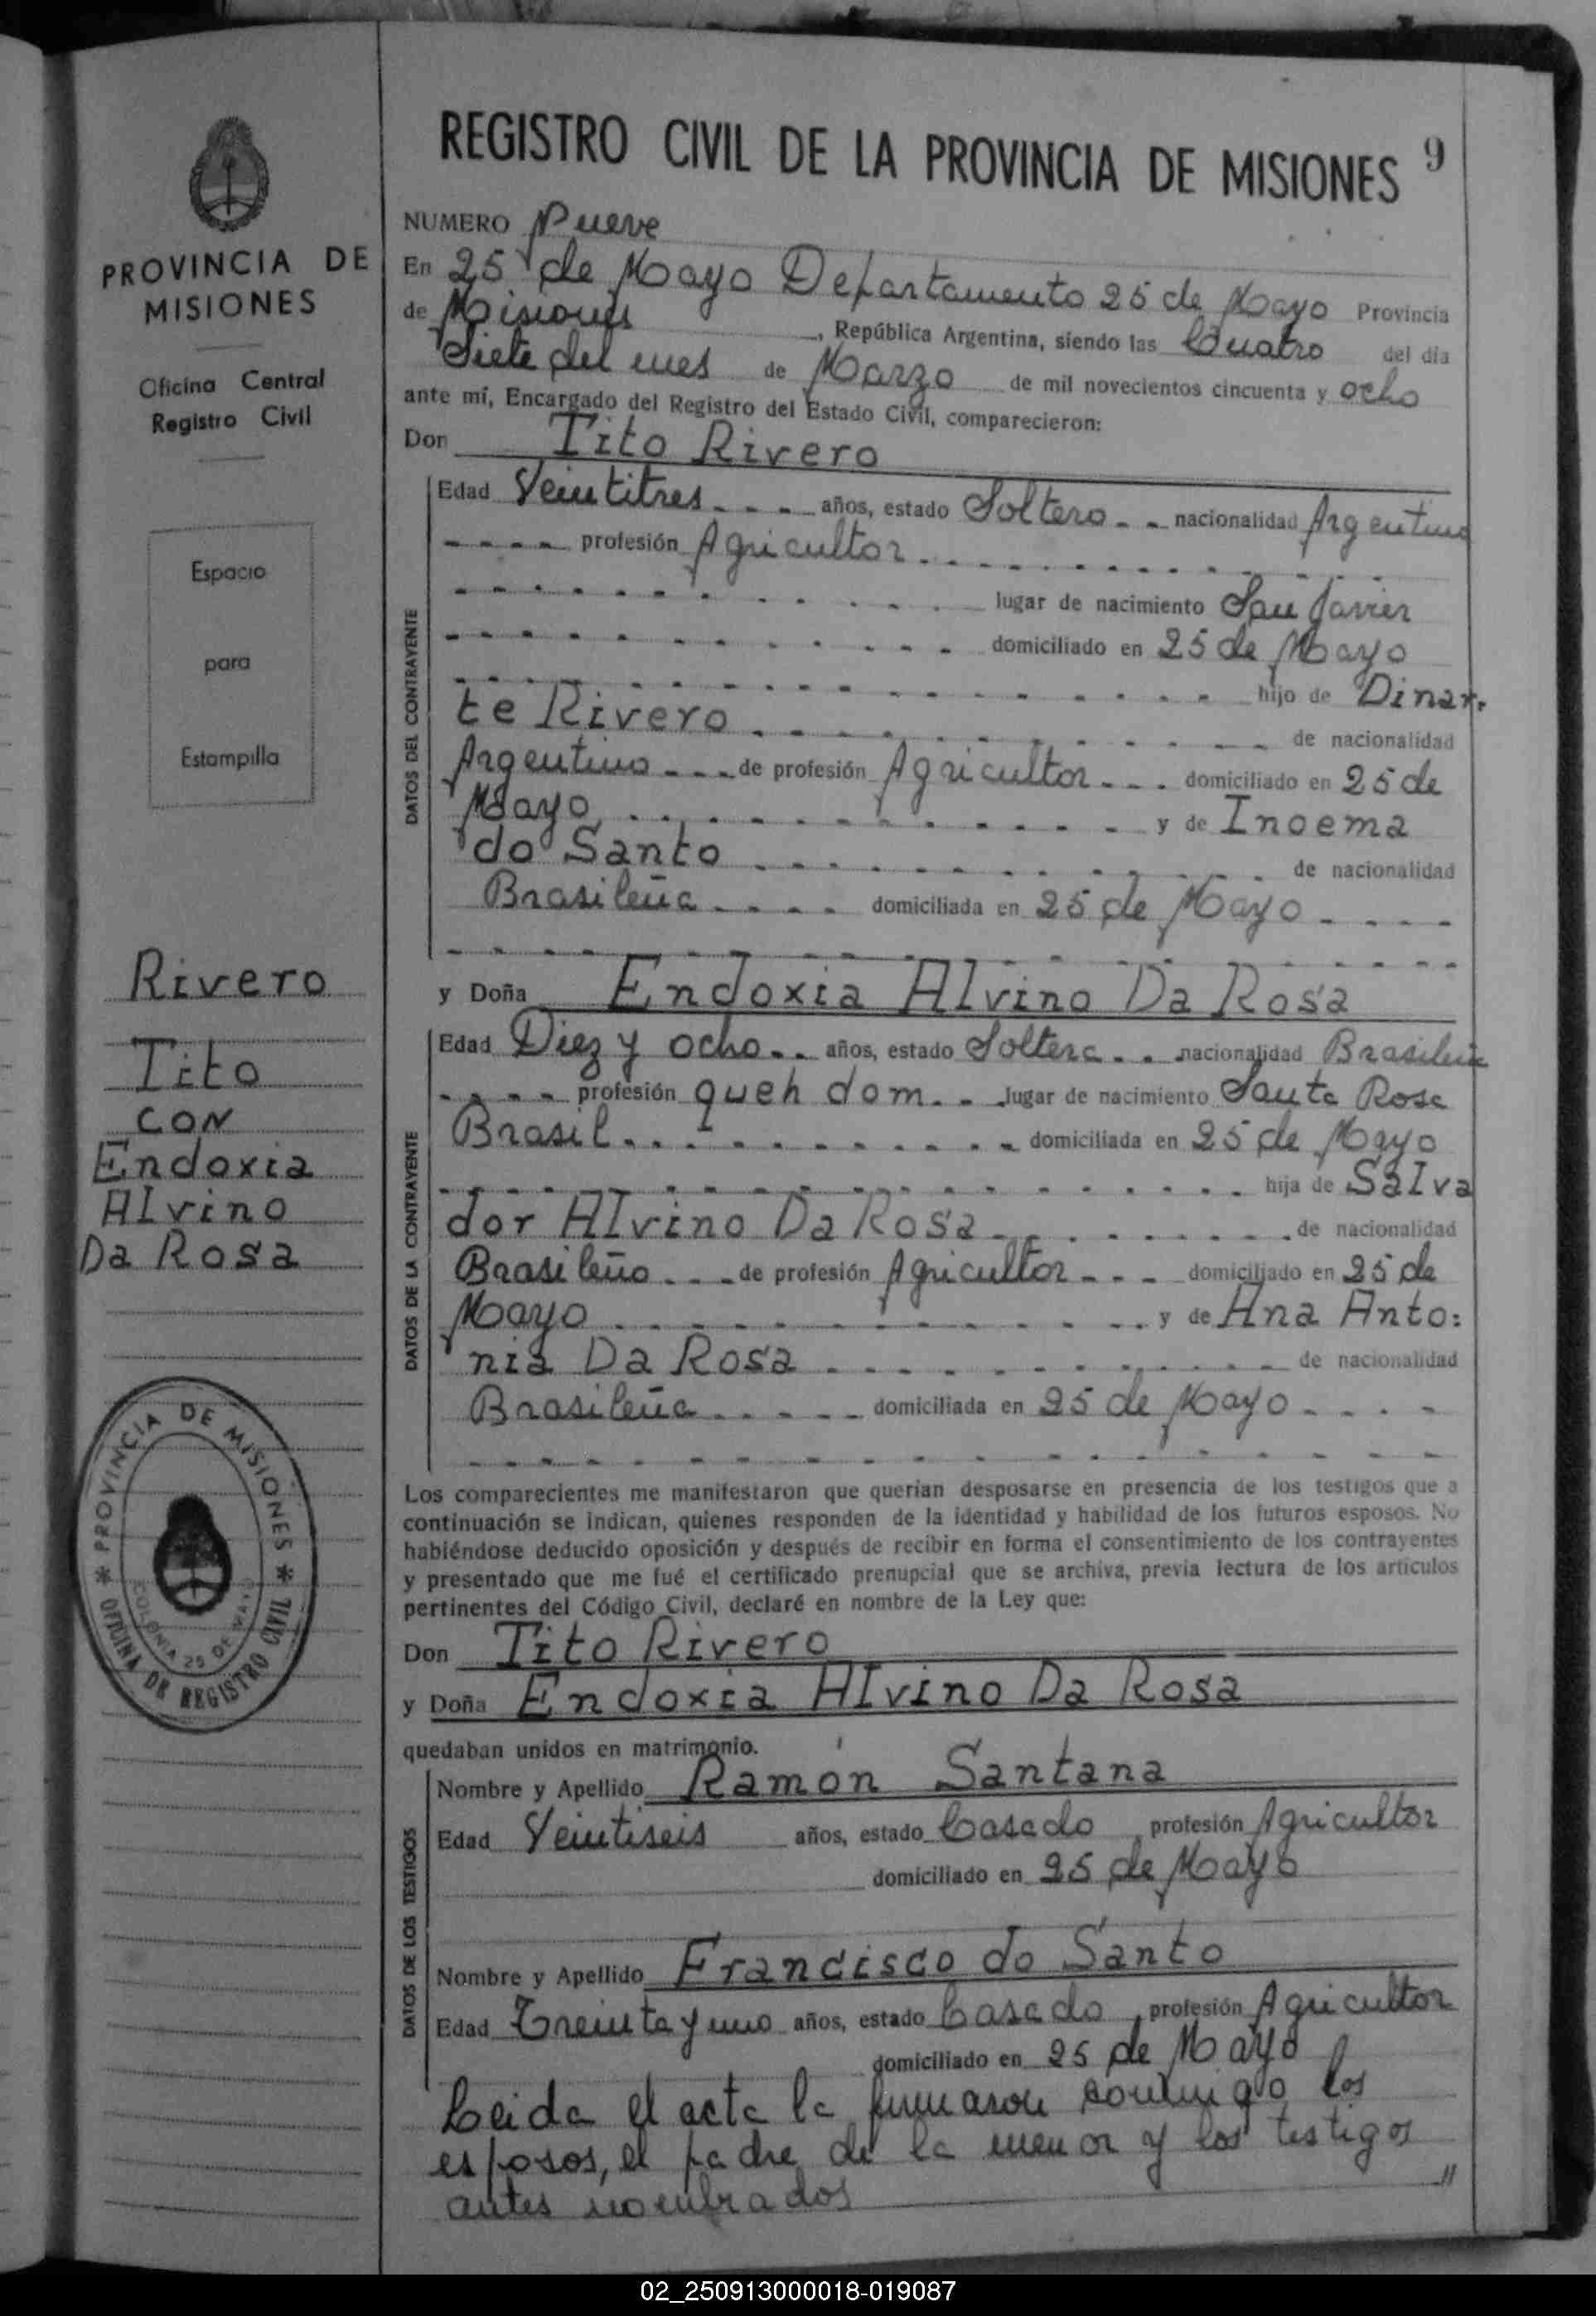 REGISTRO CIVIL DE LA PROVINCIA DE MISIONES 9
PROVINCIA DE
MISIONES
Oficina Central
Registro Civil
Espacio
para
Estampilla
Rivero
Tito
CON
Endoxia
Alvino
Da Rosa
PROVINCIA DE MISIONES
OFICINA DE REGISTRO CIVIL
COLONIA 25 DE MAYO
NUMERO Nueve
En 25 de Mayo Departamento 25 de Mayo Provincia
de Misiones, República Argentina, siendo las Cuatro del día
Siete del mes de Marzo de mil novecientos cincuenta y ocho
ante mí, Encargado del Registro del Estado Civil, comparecieron:
Don Tito Rivero
DATOS DEL CONTRAYENTE
Edad Veintitres años, estado Soltero nacionalidad Argentino
profesión Agricultor
lugar de nacimiento San Javier
domiciliado en 25 de Mayo
hijo de Dinar-
te Rivero de nacionalidad
Argentino de profesión Agricultor domiciliado en 25 de
Mayo y de Inoema
do Santo de nacionalidad
Brasileña domiciliada en 25 de Mayo
y Doña Endoxia Alvino Da Rosa
DATOS DE LA CONTRAYENTE
Edad Diez y ocho años, estado Soltera nacionalidad Brasileña
profesión queh dom. lugar de nacimiento Santa Rosa
Brasil domiciliada en 25 de Mayo
hija de Salva
dor Alvino Da Rosa de nacionalidad
Brasileño de profesión Agricultor domiciliado en 25 de
Mayo y de Ana Anto:
nia Da Rosa de nacionalidad
Brasileña domiciliada en 25 de Mayo
Los comparecientes me manifestaron que querían desposarse en presencia de los testigos que a
continuación se indican, quienes responden de la identidad y habilidad de los futuros esposos. No
habiéndose deducido oposición y después de recibir en forma el consentimiento de los contrayentes
y presentado que me fué el certificado prenupcial que se archiva, previa lectura de los artículos
pertinentes del Código Civil, declaré en nombre de la Ley que:
Don Tito Rivero
y Doña Endoxia Alvino Da Rosa
quedaban unidos en matrimonio.
DATOS DE LOS TESTIGOS
Nombre y Apellido Ramón Santana
Edad Veintiseis años, estado Casado profesión Agricultor
domiciliado en 25 de Mayo
Nombre y Apellido Francisco do Santo
Edad Treinta y uno años, estado Casado, profesión Agricultor
domiciliado en 25 de Mayo
Leida el acta la firmaron conmigo los
esposos, el padre de la menor y los testigos
antes nombrados "
02_250913000018-019087